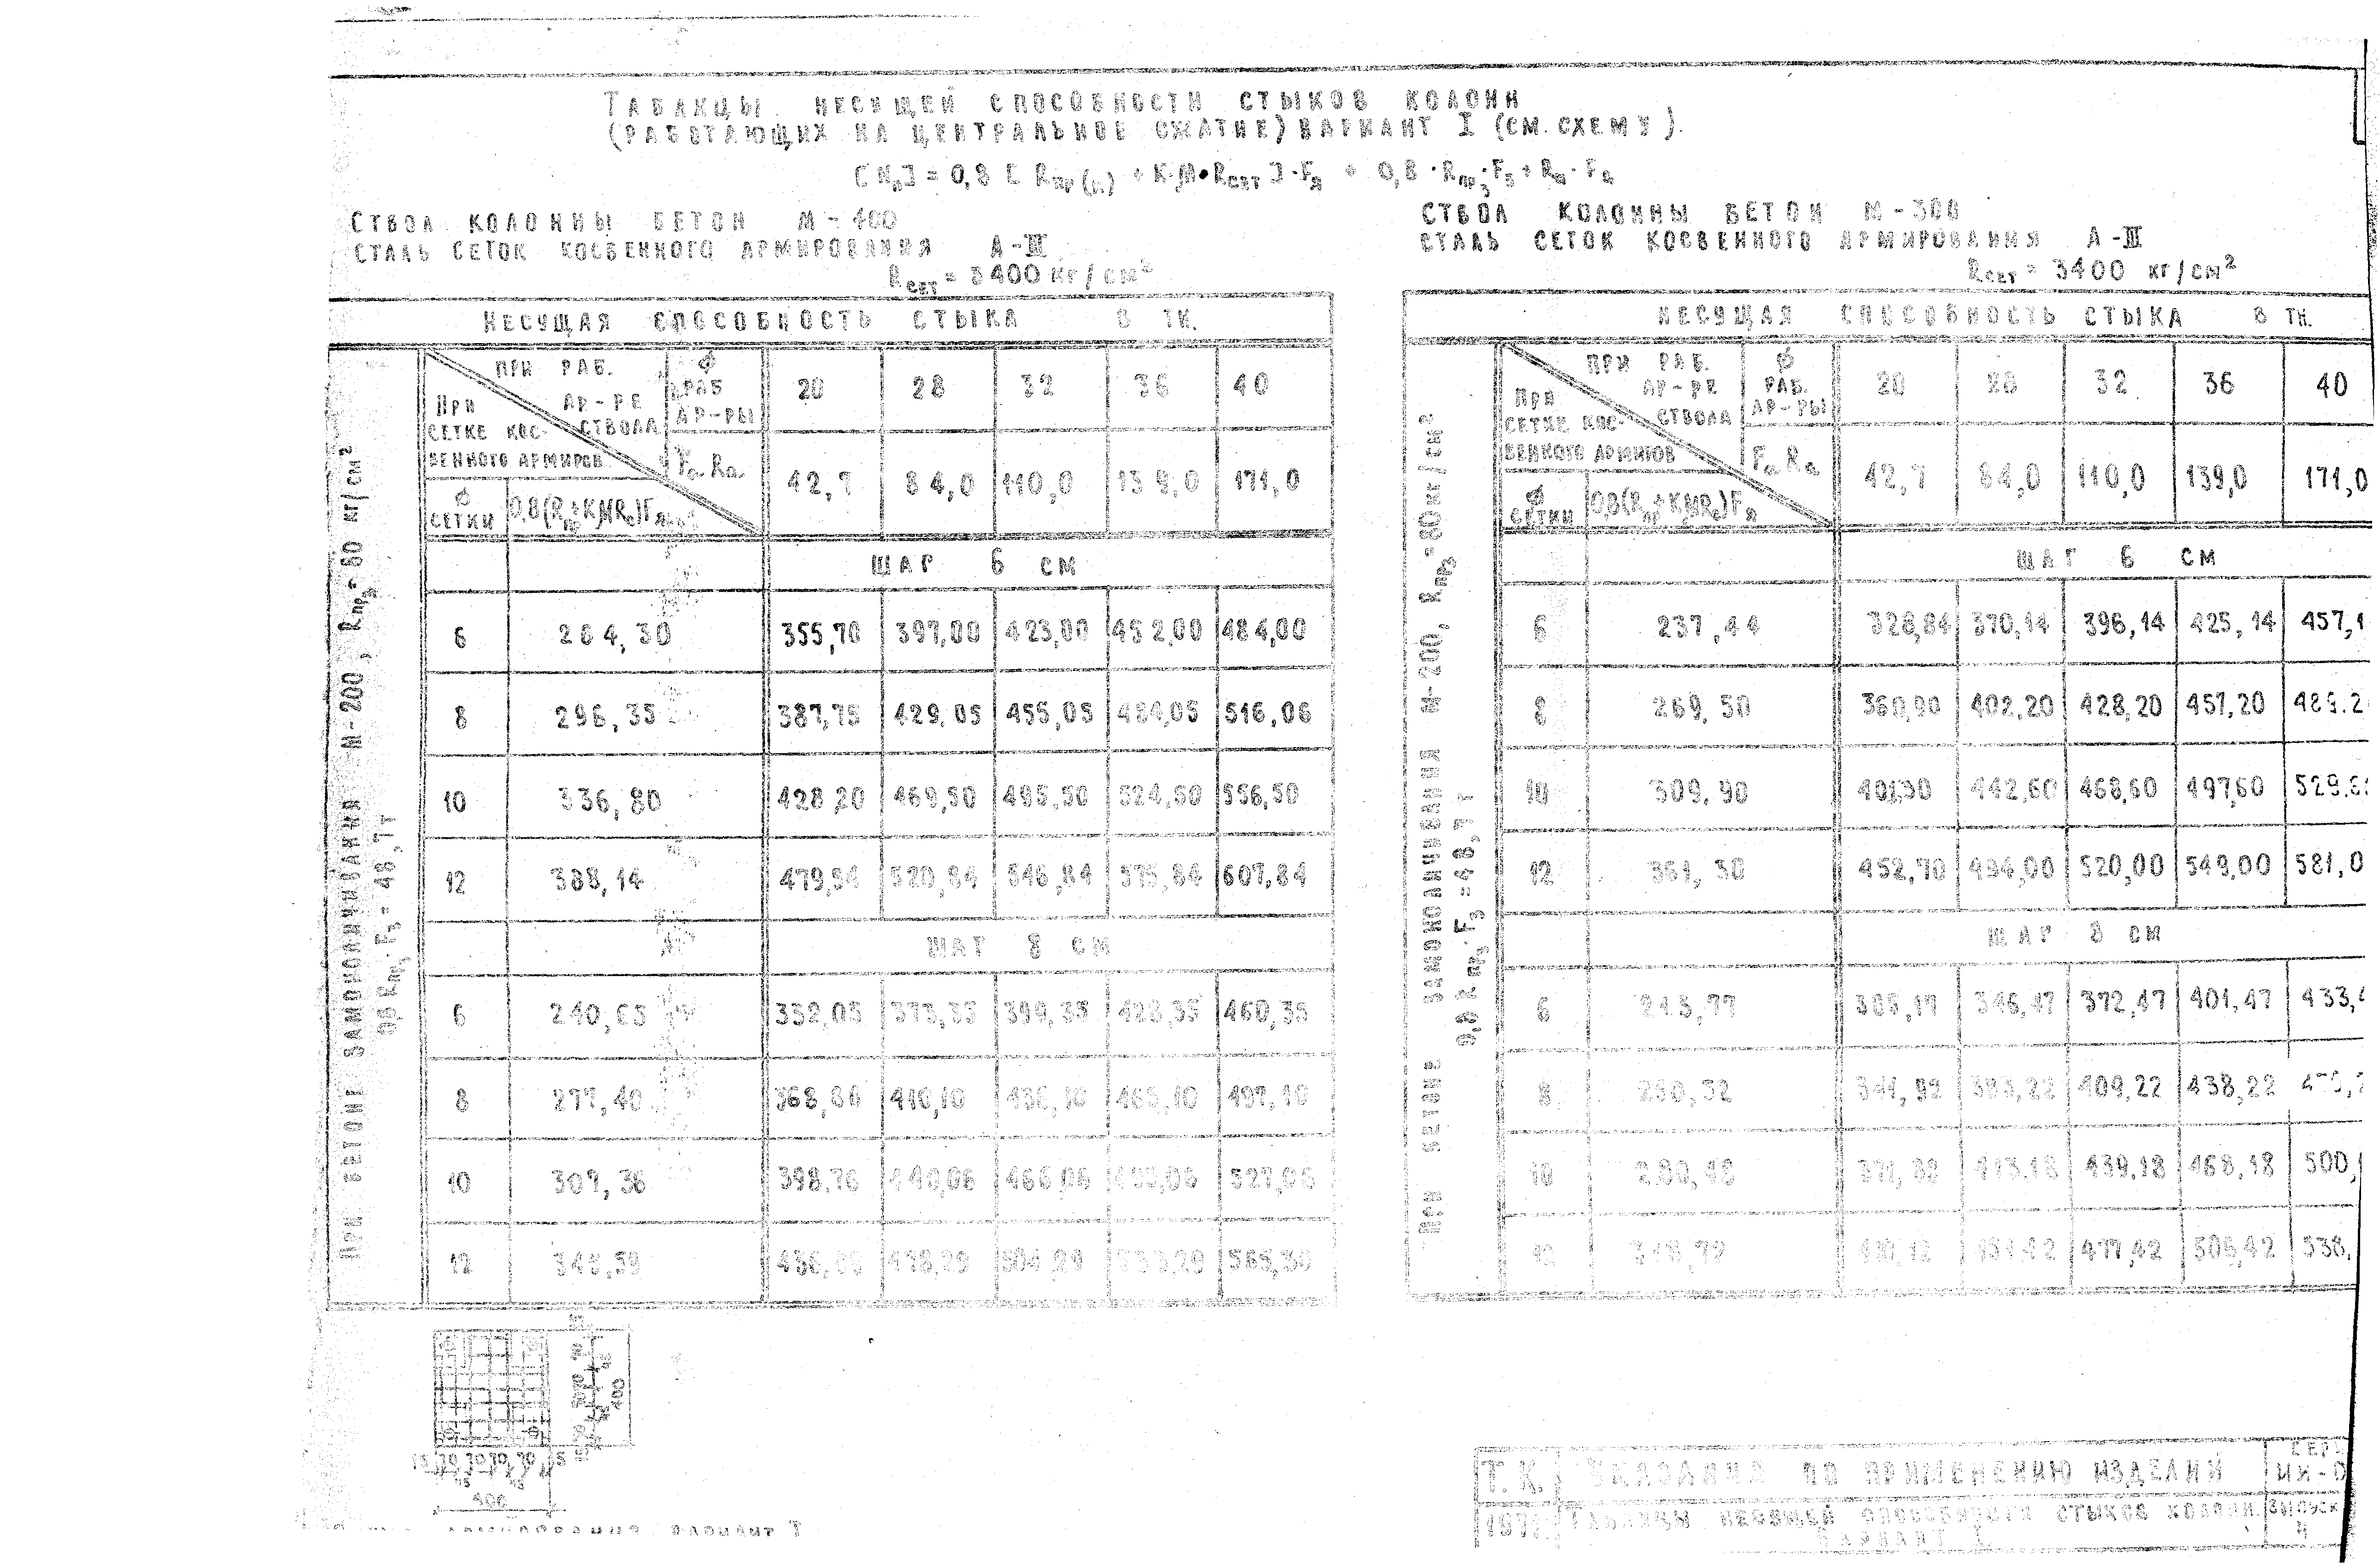 ТАБЛИЦЫ НЕСУЩЕЙ СПОСОБНОСТИ СТЫКОВ КОЛОНН
(РАБОТАЮЩИХ НА ЦЕНТРАЛЬНОЕ СЖАТИЕ) ВАРИАНТ I (СМ. СХЕМУ).
[Nп] = 0,8 [ Rпр(к) + К·М·Rсет ]·Fя + 0,8·Rпрз·Fз + Rа·Fа
СТВОЛ КОЛОННЫ БЕТОН М-400
СТАЛЬ СЕТОК КОСВЕННОГО АРМИРОВАНИЯ А-III
Rсет = 3400 кг/см²
НЕСУЩАЯ СПОСОБНОСТЬ СТЫКА В ТН.
ПРИ БЕТОНЕ ЗАМОНОЛИЧИВАНИЯ М-200, Rпрз= 80 кг/см²
0,8 Rпрз·Fз = 48,7т
ПРИ РАБ. АР-РЕ СТВОЛА
ПРИ СЕТКЕ КОС-ВЕННОГО АРМИРОВ.
Ф РАБ АР-РЫ 20 28 32 36 40
Fа Rа 42,7 84,0 110,0 139,0 171,0
Ф СЕТКИ 0,8(Rпр+КМRс)Fя
ШАГ 6 СМ
6 264,30 355,70 397,00 423,00 452,00 484,00
8 296,35 387,75 429,05 455,05 484,05 516,06
10 336,80 428,20 469,50 495,50 524,50 556,50
12 388,14 479,54 520,84 546,84 575,84 607,84
ШАГ 8 СМ
6 240,65 332,05 373,35 399,35 428,35 460,35
8 277,40 368,80 410,10 436,10 465,10 497,10
10 307,36 398,76 440,06 466,06 495,06 527,06
12 345,59 478,29 504,29 533,29 565,30
СТВОЛ КОЛОННЫ БЕТОН М-300
СТАЛЬ СЕТОК КОСВЕННОГО АРМИРОВАНИЯ А-III
Rсет = 3400 кг/см²
НЕСУЩАЯ СПОСОБНОСТЬ СТЫКА В ТН.
ПРИ БЕТОНЕ ЗАМОНОЛИЧИВАНИЯ М-200, Rпрз=80кг/см²
0,8 Rпрз·Fз =48,7т
ПРИ РАБ. АР-РЕ СТВОЛА
ПРИ СЕТКЕ КОС-ВЕННОГО АРМИРОВ
Ф РАБ. АР-РЫ 20 28 32 36 40
Fа Rа 42,7 84,0 110,0 139,0 171,0
Ф СЕТКИ 0,8(Rпр+КМRс)Fя
ШАГ 6 СМ
6 237,44 328,84 370,14 396,14 425,14 457,1
8 269,50 360,90 402,20 428,20 457,20 489,2
10 309,90 401,30 442,60 468,60 497,60 529,6
12 361,30 452,70 494,00 520,00 549,00 581,0
ШАГ 8 СМ
6 213,77 305,17 346,47 372,47 401,47 433,4
8 250,52 341,92 383,22 409,22 438,22
10 280,48 371,88 413,18 439,18 468,18 500,
12 318,72 410,12 451,42 477,42 506,42 538,
400
400
ВАРИАНТ I
Т.К. УКАЗАНИЯ ПО ПРИМЕНЕНИЮ ИЗДЕЛИЙ
СЕР
ИИ-0
197 ТАБЛИЦЫ НЕСУЩЕЙ СПОСОБНОСТИ СТЫКОВ КОЛОНН.
ВАРИАНТ I.
ВЫПУСК